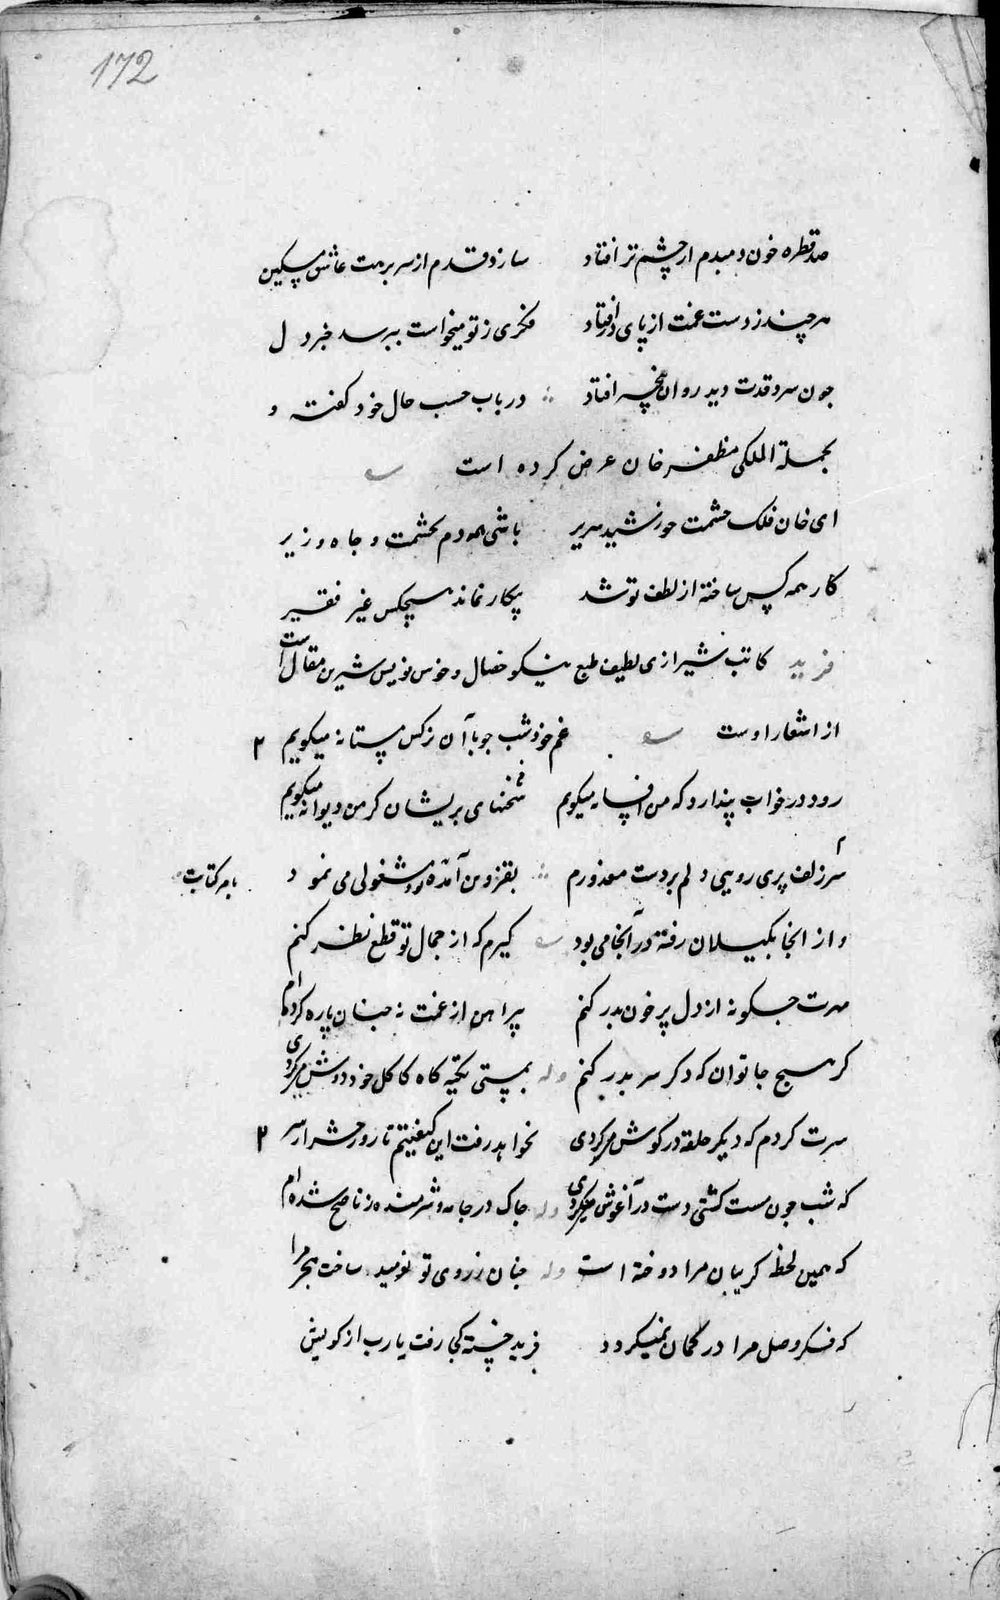 172
صد قطره خون دمبدم از چشم تر افتاد سازد قدم از سر برهت عاشق مسکین
هر چند ز دست غمت از پای در افتاد فکری ز تو میخواست بپرسد خبر دل
چون سرو قدت دید روان بیخبر افتاد در باب حسب حال خود گفته و
بجملة الملکی مظفر خان عرض کرده است
ای خان فلک حشمت خورشید سریر باشی همه دم بحشمت و جاه و زیر
کار همه کس ساخته از لطف تو شد بیکار نماند هیچکس غیر فقیر
فرید کاتب شیرازی لطیف طبع نیکو خصال و خوش نویس شیرین مقال است
از اشعار اوست غم خود شب چو با آن نرکس مستانه میکویم ۲
رود در خواب پندارد که من افسانه میکویم سخنهای پریشان کر من دیوانه میکویم
سر زلف پری رویی دلم بردست معذورم بقزوین آمده بود مشغولی می نمود
بامر کتابت
و از انجا بکیلان رفته در آنجا می بود کیرم که از جمال تو قطع نظر کنم
مهرت چکونه از دل پر خون بدر کنم پیراهن از غمت نه چنان پاره کرده ام
کز هیچ جا توان که دکر سر بدر کنم وله بمستی تکیه کاه کاکل خود دوش میکردی
سرت کردم که دیکر حلقه در کوش میکردی نخواهد رفت این کیفیتم تا روز حشر از سر ۲
که شب چون مست کشتی دست در آغوش میکردی وله چاک در جامه و شرمنده ز ناصح شده ام
که همین لحظه کریبان مرا دوخته است وله چنان ز روی تو نومید ساخت هجر مرا
که فکر وصل مرا در کمان نمیکردد فرید خسته کجا رفت یا رب از کویش